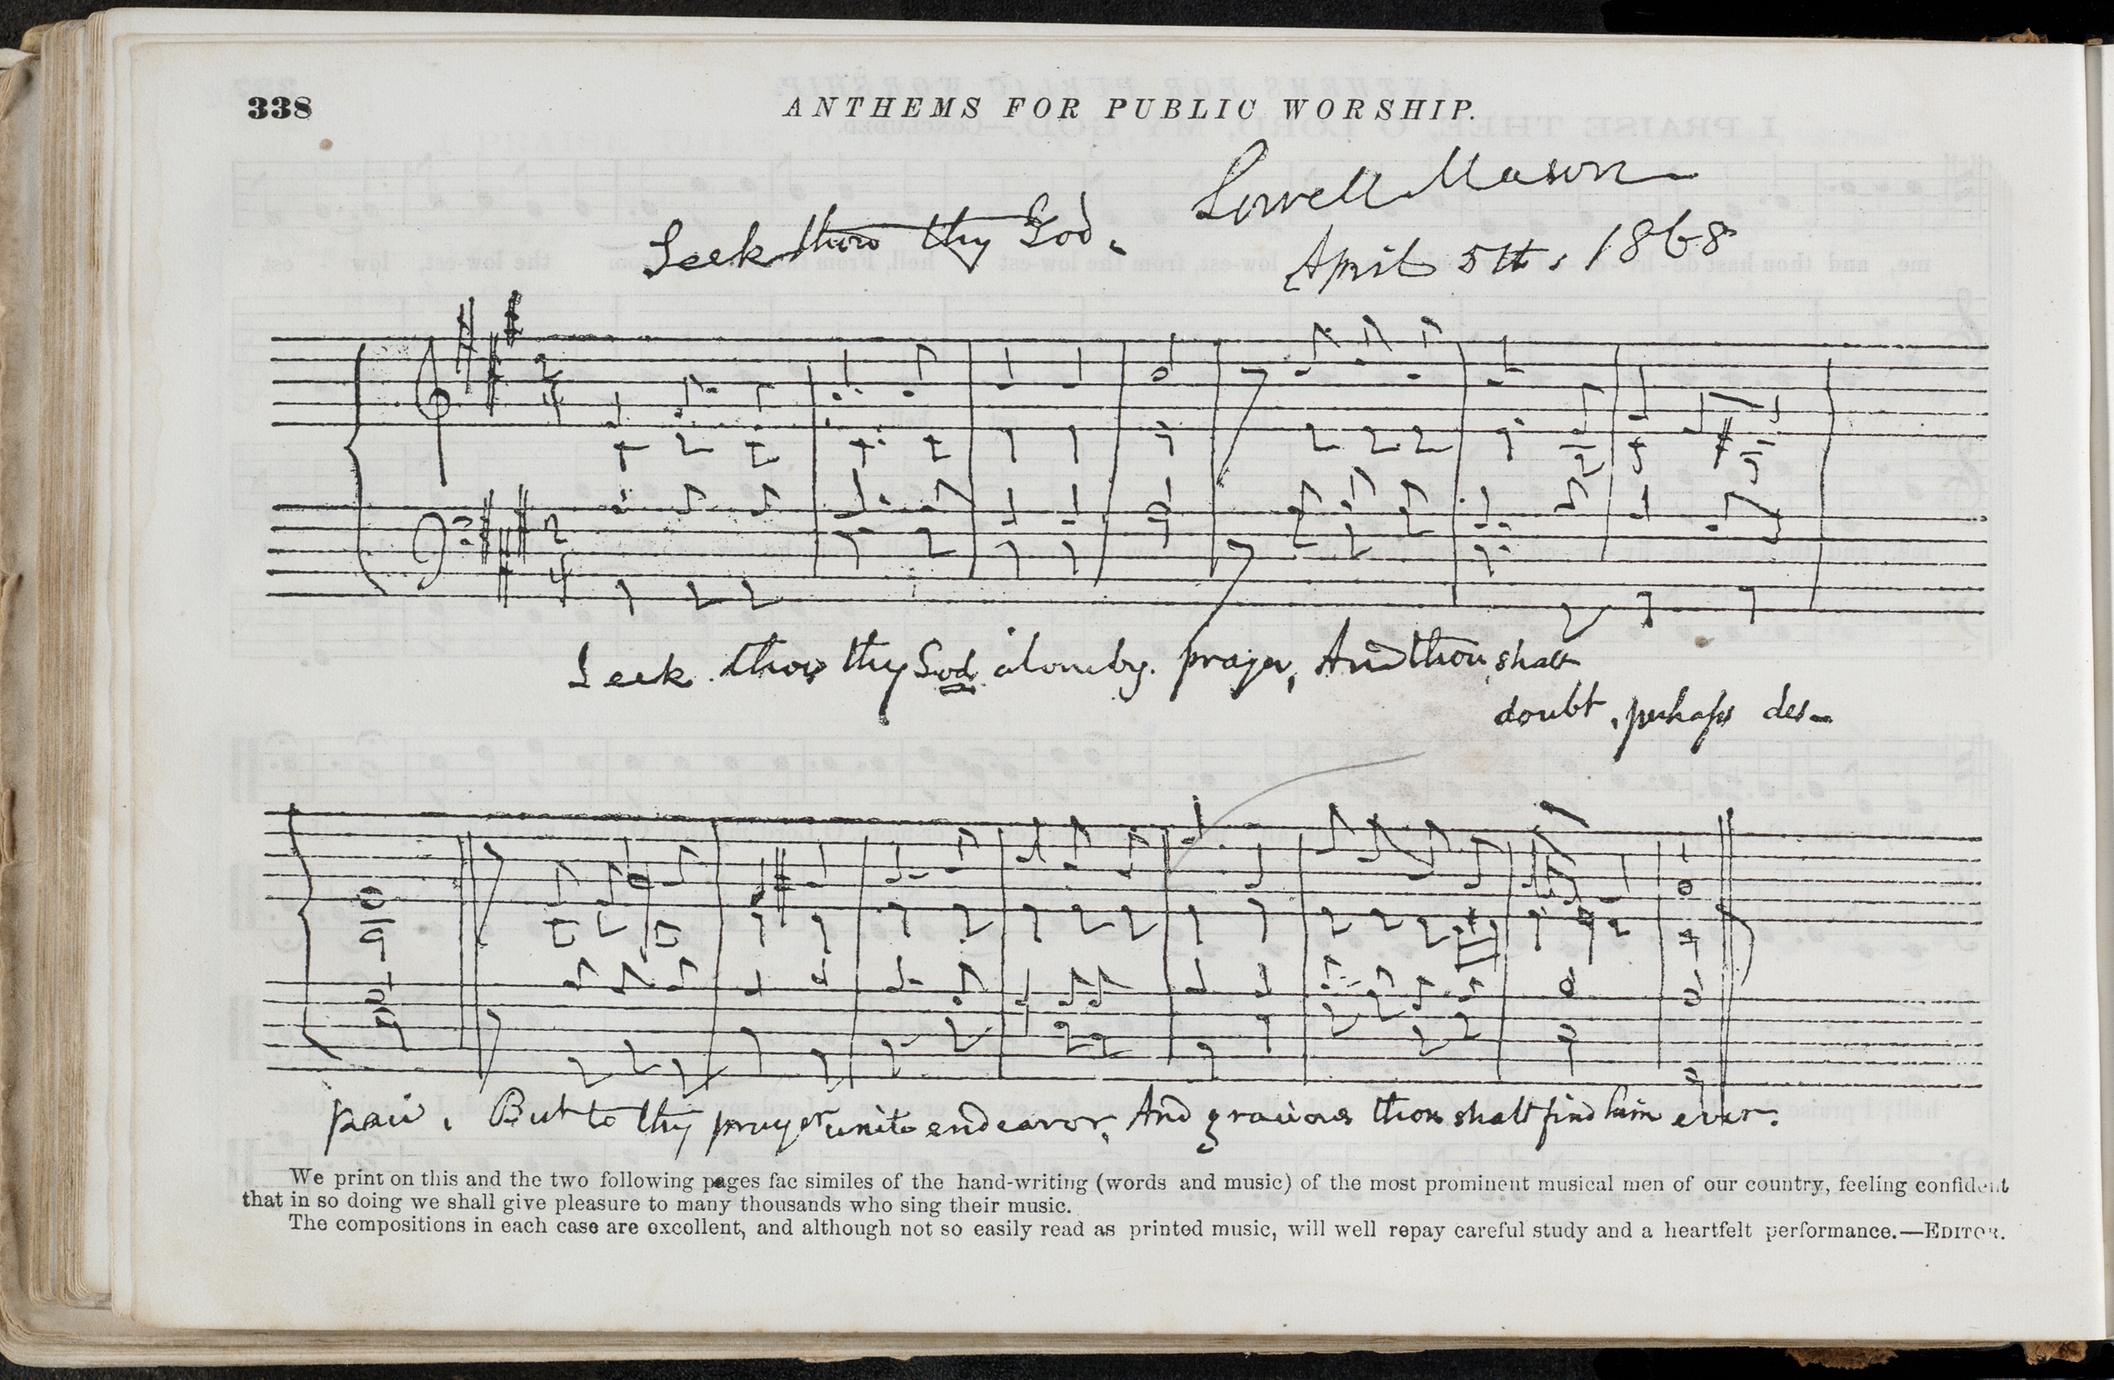 338
ANTHEMS FOR PUBLIC WORSHIP.
Lowell Mason
Seek thou thy God.
April 5th, 1868
Seek thou thy God alone by prayer, And thou shalt
doubt, perhaps des-
pair, But to thy prayer unite endeavor, And gracious thou shalt find him ever.
We print on this and the two following pages fac similes of the hand-writing (words and music) of the most prominent musical men of our country, feeling confident
that in so doing we shall give pleasure to many thousands who sing their music.
The compositions in each case are excellent, and although not so easily read as printed music, will well repay careful study and a heartfelt performance.—EDITOR.